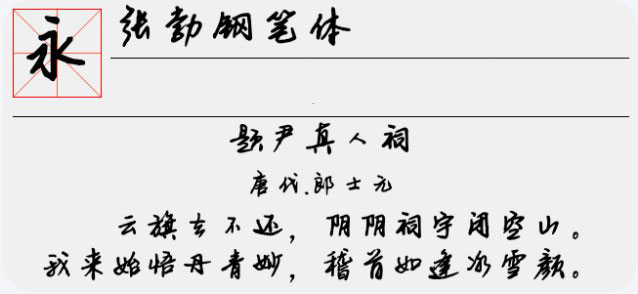 永
张勃钢笔体
题尹真人祠
唐代.郎士元
云旗去不还，阴阴祠宇闭空山。
我来始悟丹青妙，稽首如逢冰雪颜。